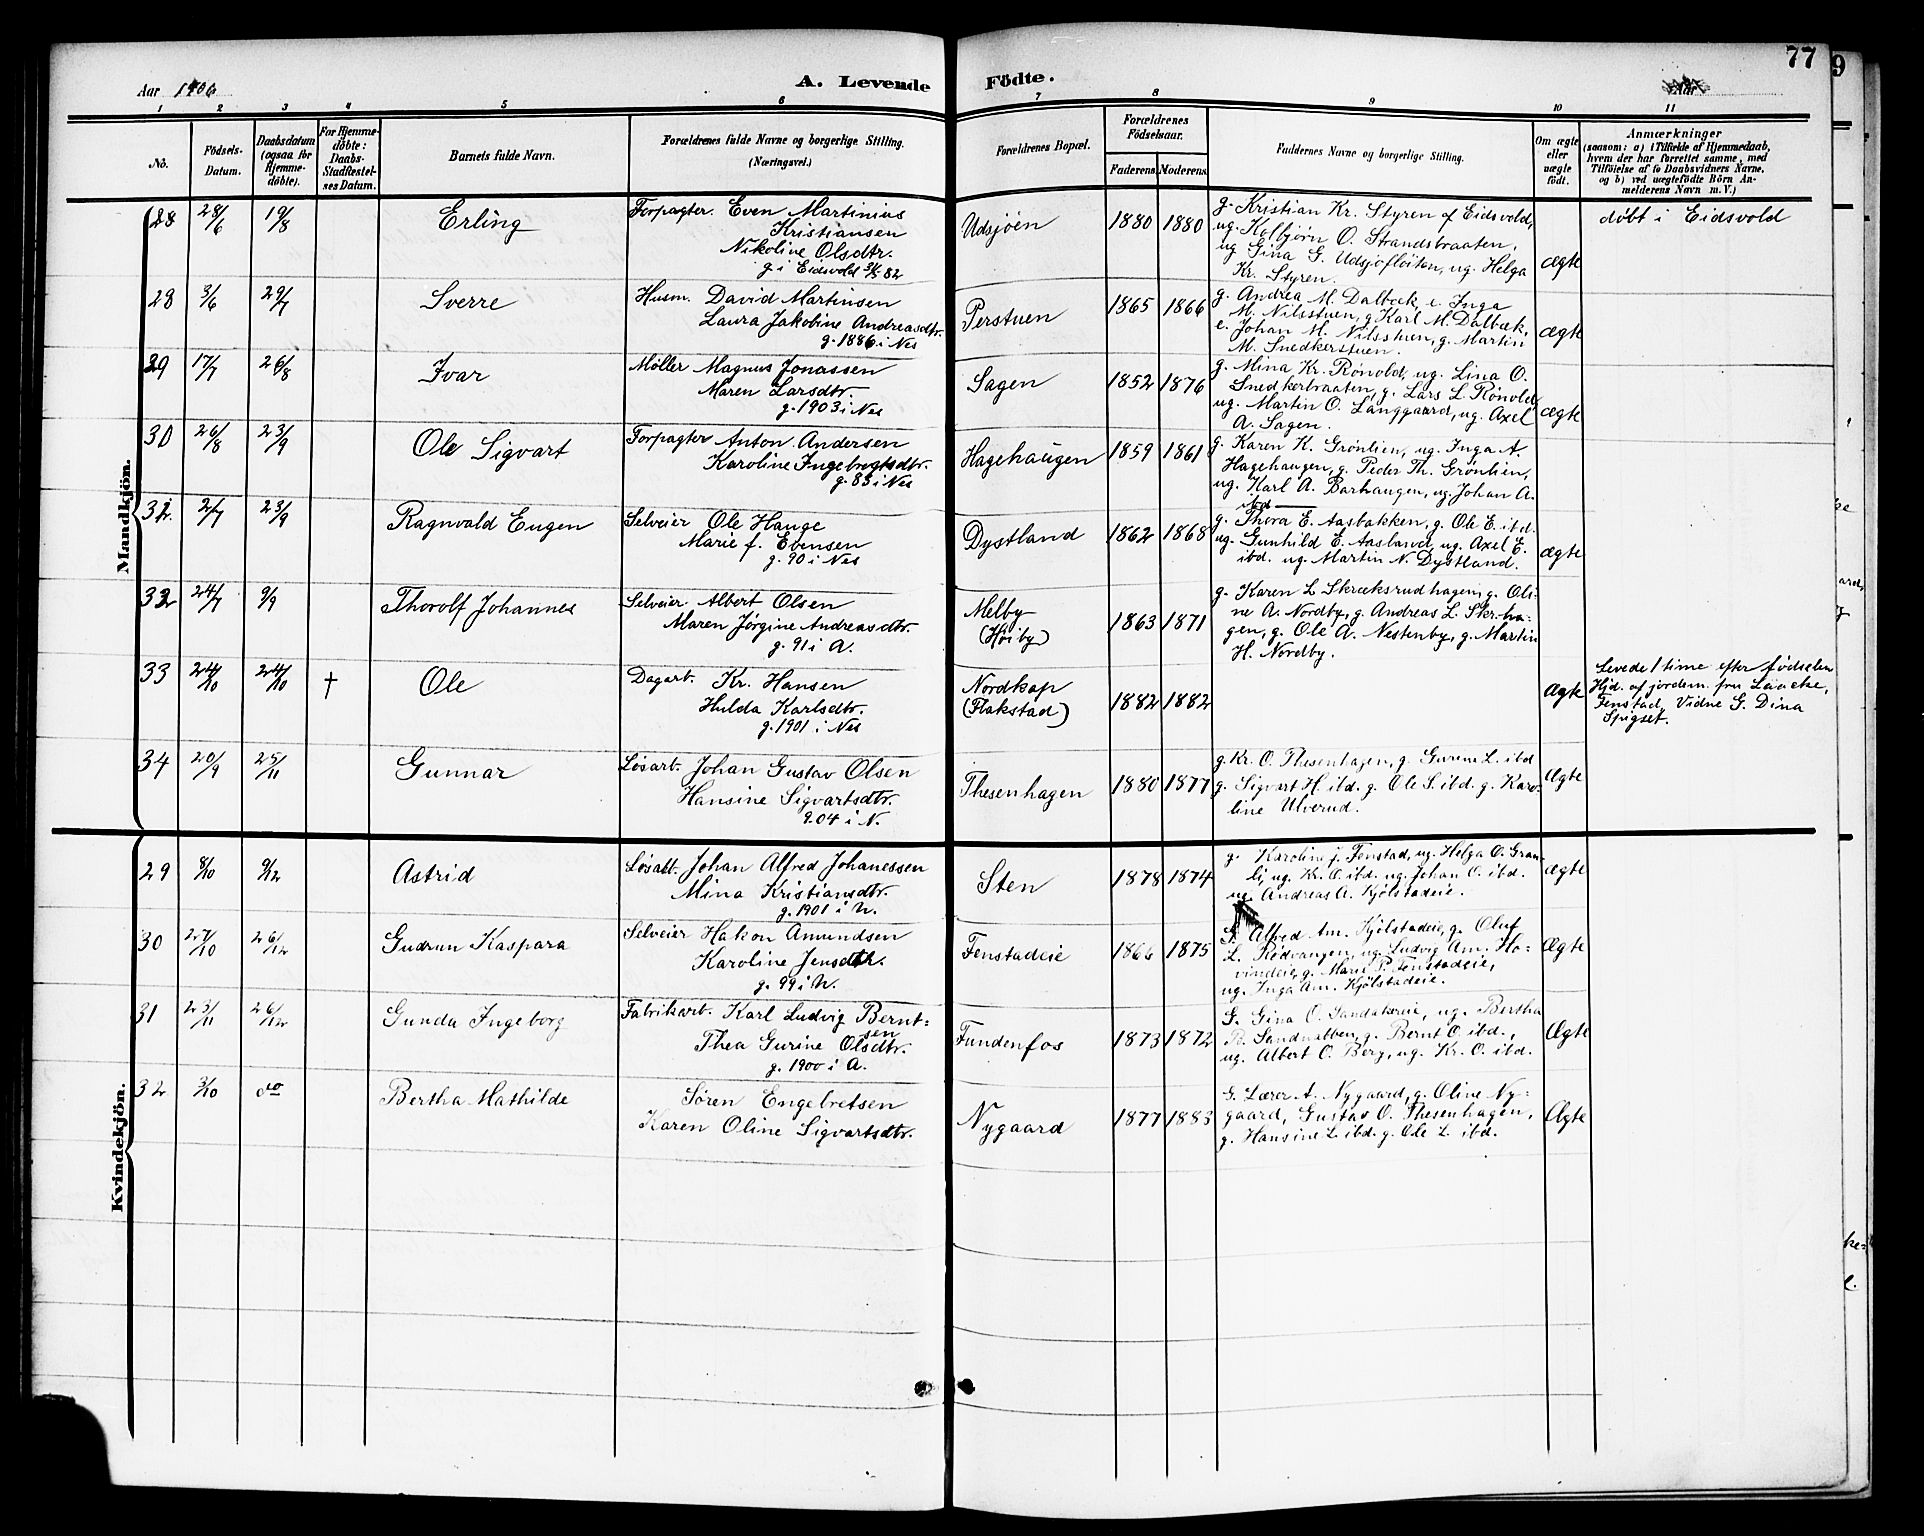 77
9
Aar 1906
A. Levende Födte.
1 2 3 4 5 6 7 8 9 10 11
No.
Födsels-Datum.
Daabsdatum (ogsaa for Hjemme-döbte).
For Hjemme-döbte: Daabs-Stadfæstel-ses Datum.
Barnets fulde Navn.
Forældrenes fulde Navne og borgerlige Stilling.
(Næringsvei.)
Forældrenes Bopæl.
Forældrenes Födselsaar.
Faderens. Moderens.
Faddernes Navne og borgerlige Stilling.
Om ægte eller uægte födt.
Anmærkninger
(saasom: a) i Tilfælde af Hjemmedaab,
hvem der har forrettet samme, med
Tilföielse af to Daabsvidners Navne.
og b) ved uægtefödte Börn An-
melderens Navn m. V.)
Mandkjön.
28 28/6 19/8 Erling
Forpagter. Even Martinius
Kristiansen
Nikoline Olsdtr.
g. i Eidsvold 31/5 82
Udsjöen 1880 1880
g. Kristian Kr. Styren af Eidsvold,
ug. Kolbjørn O. Strandsbraaten,
ug Gina G. Udsjøfløiten, ug. Helga
Kr. Styren.
Ægte
døbt i Eidsvold
28 3/6 29/7 Sverre
Husm. David Martinsen
Laura Jakobine Andreasdtr.
g. 1886 i Nes
Perstuen 1865 1866
g. Andrea M. Dalbæk, e. Inga
M. Nilsstuen, g Karl M. Dalbæk,
e. Johan M. Nilsstuen, g. Martin
M. Snedkerstuen.
Ægte
29 17/7 26/8 Ivar
Møller Magnus Jonassen
Maren Larsdtr.
g. 1903 i Nes
Sagen 1852 1876
g. Mina Kr. Rønold, ug. Lina O.
Snedkerbraaten, g. Lars L. Rønold,
ug. Martin O. Langgaard, ug. Axel
A. Sagen.
Ægte
30 26/8 23/9 Ole Sigvart
Forpagter Anton Andersen
Karoline Ingebregtsdtr.
g. 83 i Nes
Hagehaugen 1859 1861
g. Karen K. Grønlien, ug. Inga A.
Hagehaugen, g. Peder Th. Grønlien,
ug. Karl A. Barhaugen, ug. Johan A.
ibd
31 2/7 23/9 Ragnvald Eugen
Selveier Ole Hauge
Marie f. Ebensen
g. 90 i Nes
Dystland 1862 1868
g. Thora E. Aasbakken, g. Ole E. ibd.
ug. Gunhild E. Aasbakken, ug. Axel E.
ibd. ug. Martin N. Dystland.
Ægte
32 24/7 9/9 Thorolf Johannes
Selveier Albert Olsen
Maren Jørgine Andreasdtr.
g. 91 i A.
Melby
(Høiby)
1863 1871
g. Karen L Skræksrudhagen, g. Oli-
ne A. Nordby, g. Andreas L. Skr.ha-
gen, g. Ole A. Nestenby, g. Martin
H. Nordby.
33 24/10 24/10 † Ole
Dagarb. Kr. Hansen
Hulda Karlsdtr.
g. 1901 i Nes
Nordkap
(Flakstad)
1882 1882
Ægte
Levede 1 time efter fødselen
Hjd. af jordem. fru Laache,
Fenstad. Vidne G. Dina
Spigset.
34 20/9 25/11 Gunnar
Løsarb. Johan Gustav Olsen
Hansine Sigvartsdtr.
g. 04 i N.
Thesenhagen 1880 1877
g. Kr. O. Thesenhagen, g. Gurine L. ibd
g. Sigvart H. ibd. g. Ole S. ibd. g. Karo-
line Ulverud.
Ægte
Kvindekjön.
29 8/10 9/12 Astrid
Løsarb. Johan Alfred Johanessen
Mina Kristiansdtr.
g. 1901 i N.
Sten 1878 1874
g. Karoline J. Fenstad, ug. Helga O. Gran-
li, ug. Kr. O. ibd. ug. Johan O. ibd.
ug. Andreas A. Kjölstadeie.
Ægte
30 27/10 26/12 Gudrun Kaspara
Selveier Hakon Amundsen
Karoline Jensdtr.
g. 99 i N.
Fenstadeie 1866 1875
G. Alfred Am. Kjölstadeie, g. Oluf
L. Rødvangen, ug. Ludvig Am. Ho-
vindeie, g. Marie P. Fenstadeie,
ug. Inga Am. Kjölstadeie.
Ægte
31 23/11 26/12 Gunda Ingeborg
Fabrikarb. Karl Ludvig Bernt=
sen
Thea Gurine Olsdtr.
g. 1900 i A.
Fundenfos 1873 1872
G. Gina O. Sandakereie, ug. Bertha
B. Sandnabben, g. Bernt O. ibd.,
ug. Albert O. Berg, ug. Kr. O. ibd.
Ægte
32 3/10 do Bertha Mathilde
Søren Engebretsen
Karen Oline Sigvartsdtr.
Nygaard 1877 1883
G. Lærer A. Nygaard, g. Oline Ny=
gaard, Gustav O. Thesenhagen,
g. Hansine L. ibd. g. Ole L. ibd.
Ægte